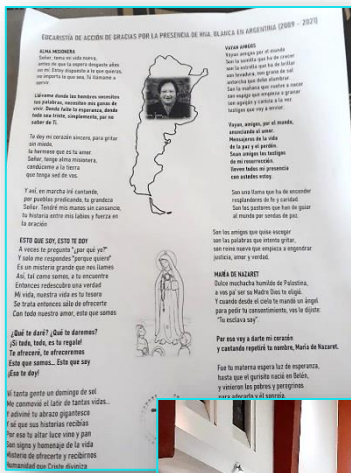 EUCARISTÍA DE ACCIÓN DE GRACIAS POR LA PRESENCIA DE HNA. BLANCA EN ARGENTINA (2009 - 2021)
ALMA MISIONERA
Señor, toma mi vida nueva,
antes de que la espera desgaste años
en mí. Estoy dispuesto a lo que quieras,
no importa lo que sea, Tú llámame a
servir
Llévame donde los hombres necesiten
tus palabras, necesiten mis ganas de
vivir. Donde falte la esperanza, donde
todo sea triste, simplemente, por no
saber de Ti.
Te doy mi corazón sincero, para gritar
sin miedo,
lo hermoso que es tu amor.
Señor, tengo alma misionera,
condúceme a la tierra
que tenga sed de vos.
Y así, en marcha iré cantando,
por pueblos predicando, tu grandeza
Señor. Tendré mis manos sin cansancio,
tu historia entre mis labios y fuerza en
la oración
ESTO QUE SOY, ESTO TE DOY
A veces te pregunto "¿por qué yo?"
Y solo me respondes "porque quiero"
Es un misterio grande que nos llames
Así, tal como somos, a tu encuentro
Entonces redescubro una verdad
Mi vida, nuestra vida es tu tesoro
Se trata entonces sólo de ofrecerte
Con todo nuestro amor, esto que somos
¿Qué te daré? ¿Qué te daremos?
¡Si todo, todo, es tu regalo!
Te ofreceré, te ofreceremos
Esto que somos... Esto que soy
¡Eso te doy!
Vi tanta gente un domingo de sol
Me conmovió el latir de tantas vidas...
Y adiviné tu abrazo gigantesco
Y sé que sus historias recibías
Por eso tu altar luce vino y pan
Son signo y homenaje de la vida
Misterio de ofrecerte y recibirnos
Humanidad que Cristo diviniza
VAYAN AMIGOS
Vayan amigos por el mundo
Son la semilla que ha de crecer
son la estrella que ha de brillar
son levadura, son grano de sal
antorcha que debe alumbrar.
Son la mañana que vuelve a nacer
son espiga que empieza a granar
son aguijón y caricia a la vez
testigos que voy a enviar.
Vayan, amigos, por el mundo,
anunciando el amor.
Mensajeros de la vida
de la paz y el perdón.
Sean amigos los testigos
de mi resurrección.
lleven todos mi presencia
con ustedes estoy.
Son una llama que ha de encender
resplandores de fe y caridad.
Son los pastores que han de guiar
al mundo por sendas de paz.
Son los amigos que quise escoger
son las palabras que intento gritar,
son reino nuevo que empieza a engendrar
justicia, amor y verdad.
MARÍA DE NAZARET
Dulce muchacha humilde de Palestina,
a vos pa' ser su Madre Dios te eligió.
Y cuando desde el cielo te mandó un ángel
para pedir tu consentimiento, vos le dijiste:
"Tu esclava soy".
Por eso voy a darte mi corazón
y cantando repetiré tu nombre, María de Nazaret.
Fue tu materna espera luz de esperanza,
hasta que el gurisito nació en Belén,
y vinieron los pobres y peregrinos